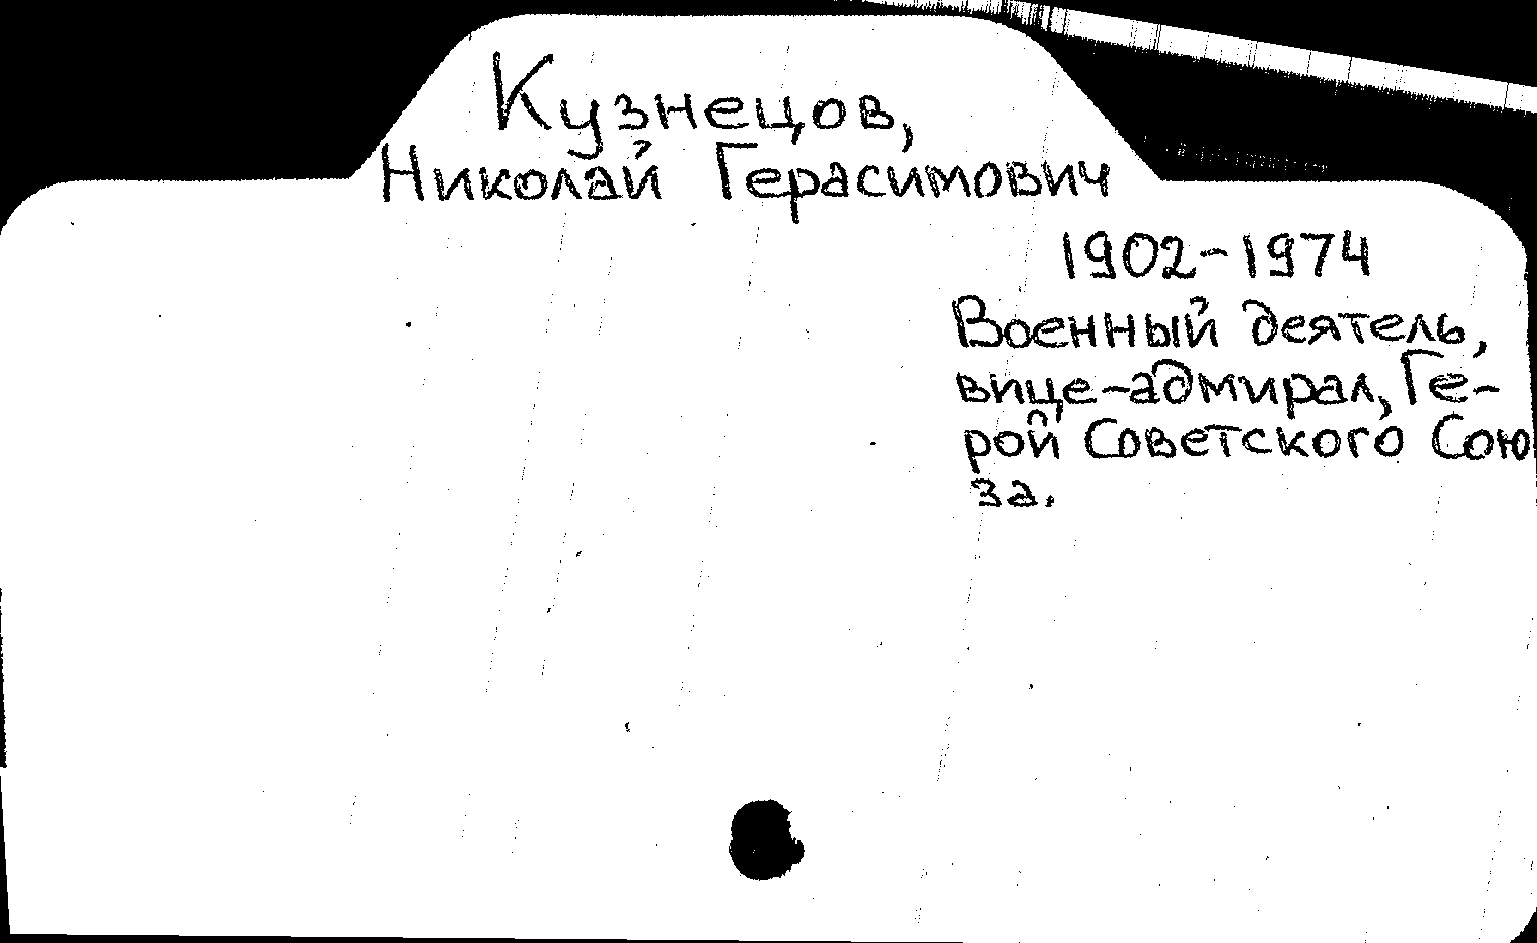 Кузнецов,
Николай Герасимович
1902-1974
Военный деятель,
вице-адмирал, Ге-
рой Советского Сою
за.